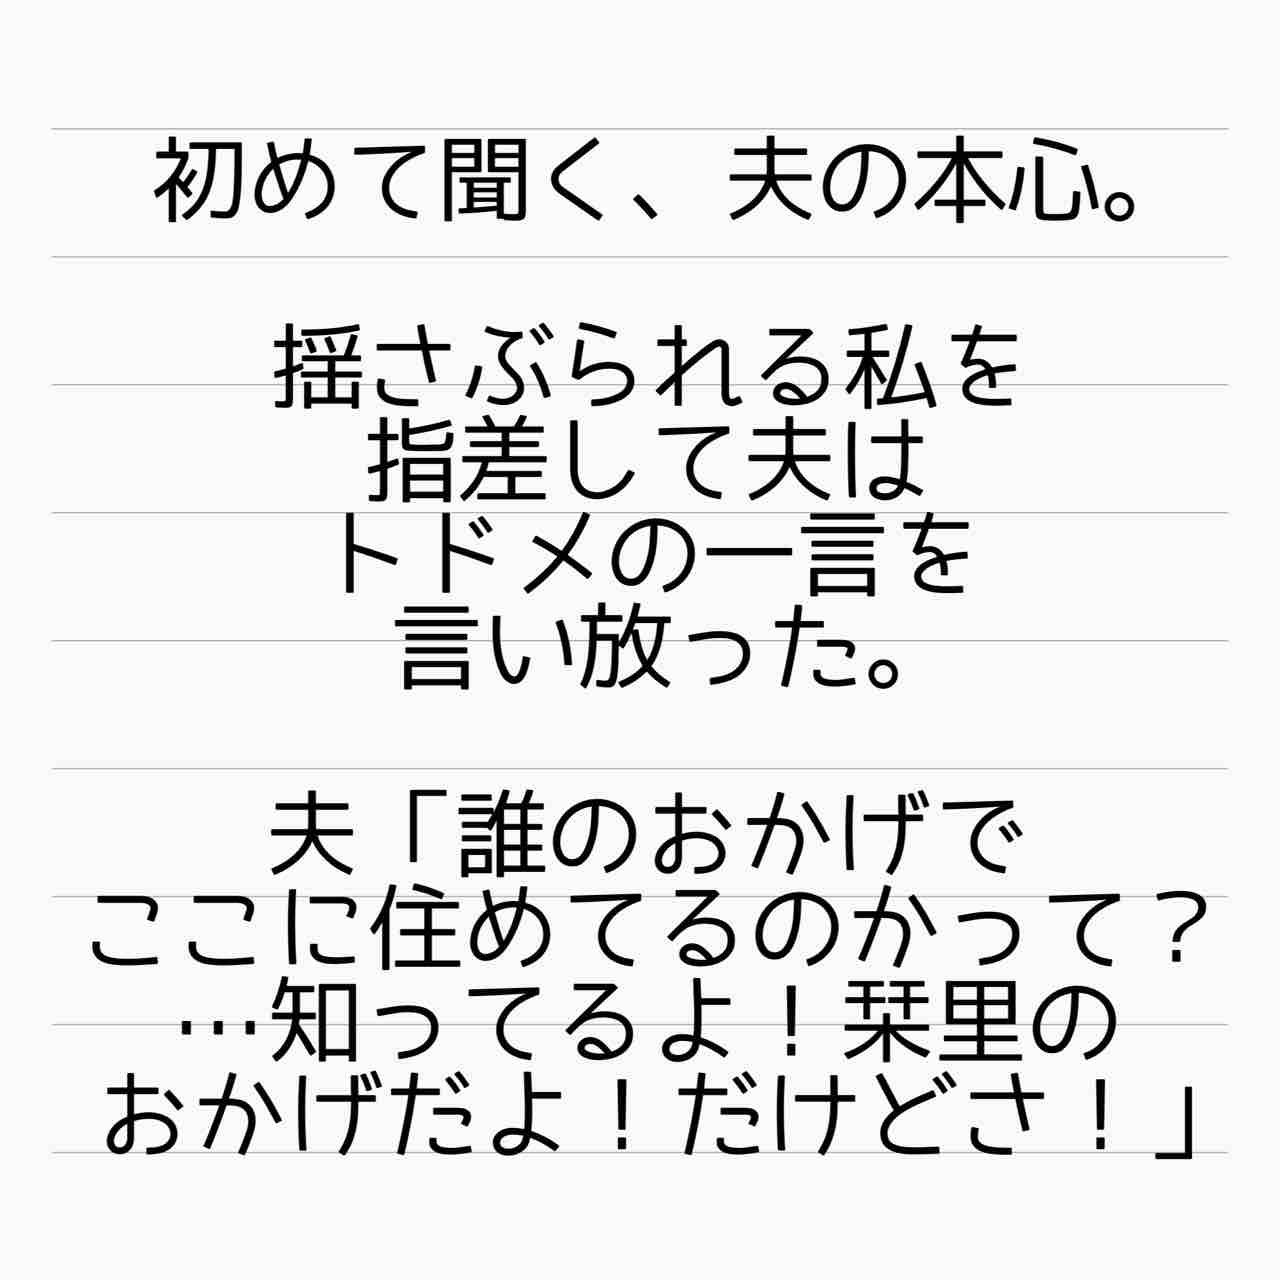 初めて聞く、夫の本心。
揺さぶられる私を
指差して夫は
トドメの一言を
言い放った。
夫「誰のおかげで
ここに住めてるのかって？
…知ってるよ！栞里の
おかげだよ！だけどさ！」